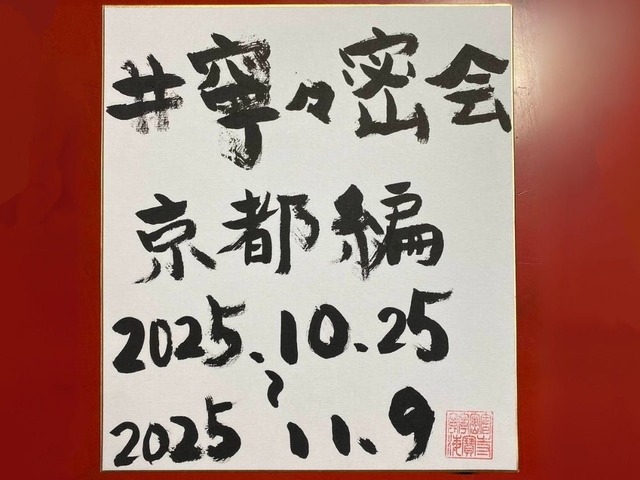 #寧々密会
京都編
2025.10.25
～
2025 11.9